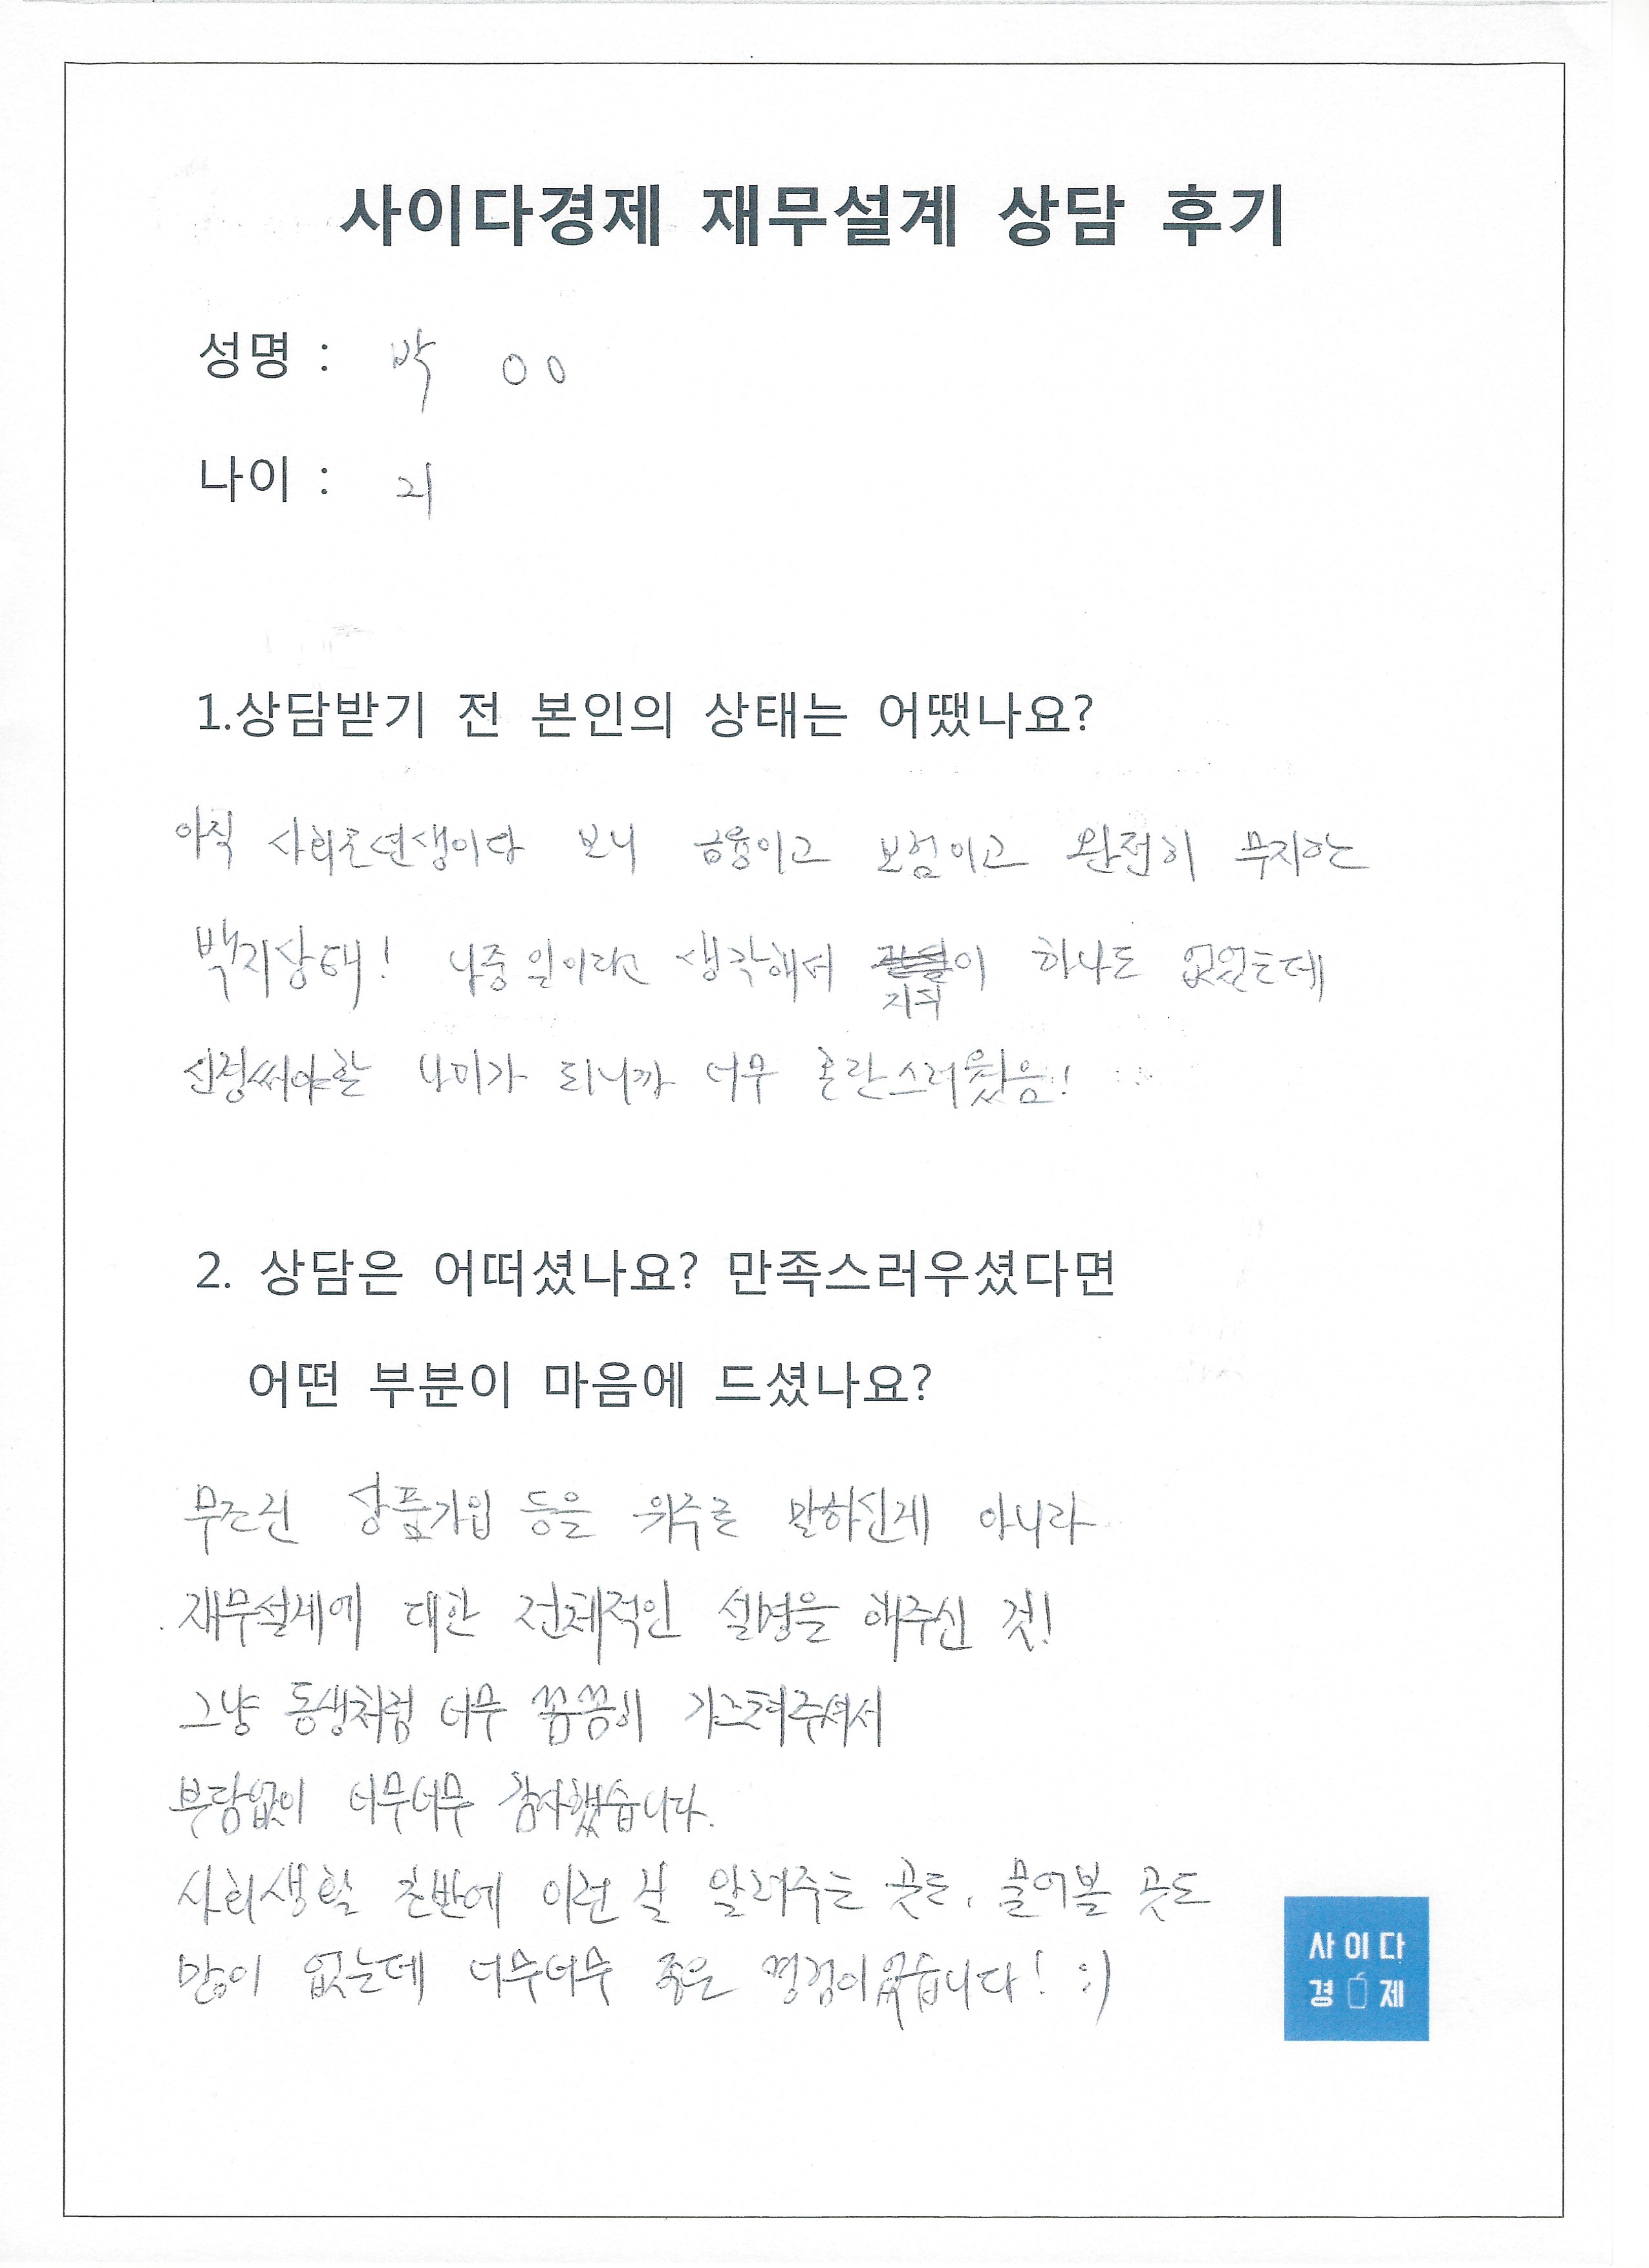 사이다경제 재무설계 상담 후기
성명 : 박 ㅇㅇ
나이 : 21
1.상담받기 전 본인의 상태는 어땠나요?
아직 사회초년생이다 보니 금융이고 보험이고 완전히 무지한
백지상태! 나중 일이라고 생각해서 이 하나도 없었는데
지식
신경써야할 나이가 되니까 너무 혼란스러웠음!
2. 상담은 어떠셨나요? 만족스러우셨다면
어떤 부분이 마음에 드셨나요?
무조건 상품가입 등을 위주로 말하신게 아니라
재무설계에 대한 전체적인 설명을 해주신 것!
그냥 동생처럼 너무 꼼꼼히 가르쳐주셔서
부담없이 너무너무 감사했습니다.
사회생활 초반에 이런 걸 알려주는 곳도, 물어볼 곳도
많이 없는데 너무너무 좋은 경험이었습니다! :)
사이다
경제